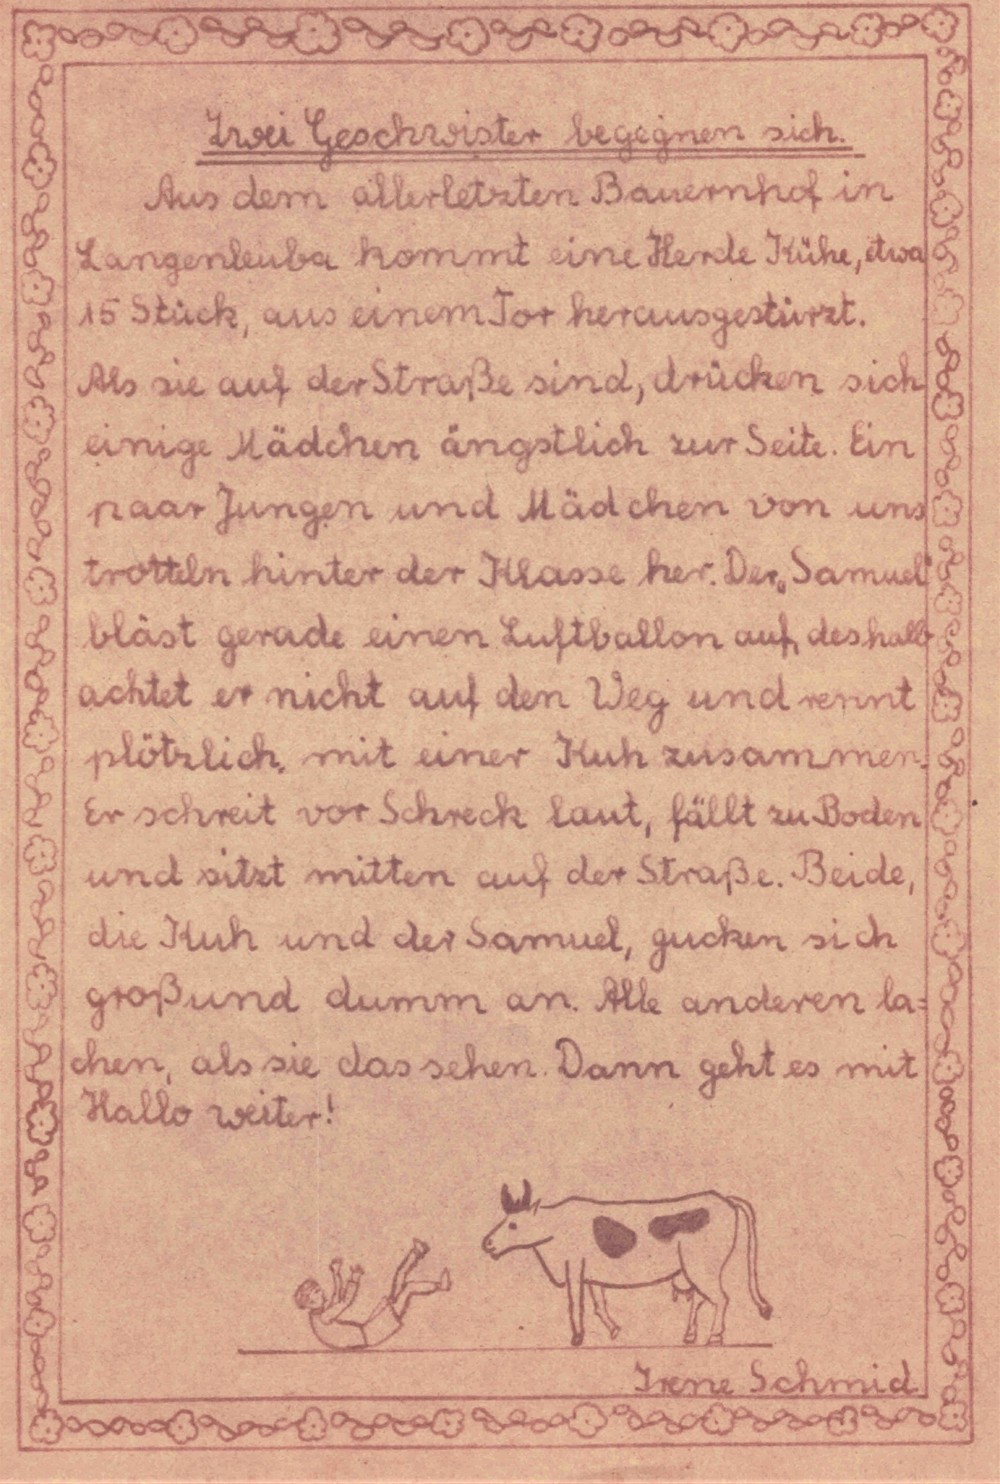 Zwei Geschwister begegnen sich.
Aus dem allerletzten Bauernhof in
Langenleuba kommt eine Herde Kühe, etwa
15 Stück, aus einem Tor herausgestürzt.
Als sie auf der Straße sind, drücken sich
einige Mädchen ängstlich zur Seite. Ein
paar Jungen und Mädchen von uns
trotteln hinter der Klasse her. Der „Samuel“
bläst gerade einen Luftballon auf, deshalb
achtet er nicht auf den Weg und rennt
plötzlich mit einer Kuh zusammen.
Er schreit vor Schreck laut, fällt zu Boden
und sitzt mitten auf der Straße. Beide,
die Kuh und der Samuel, gucken sich
groß und dumm an. Alle anderen la=
chen, als sie das sehen. Dann geht es mit
Hallo weiter!
Irene Schmid